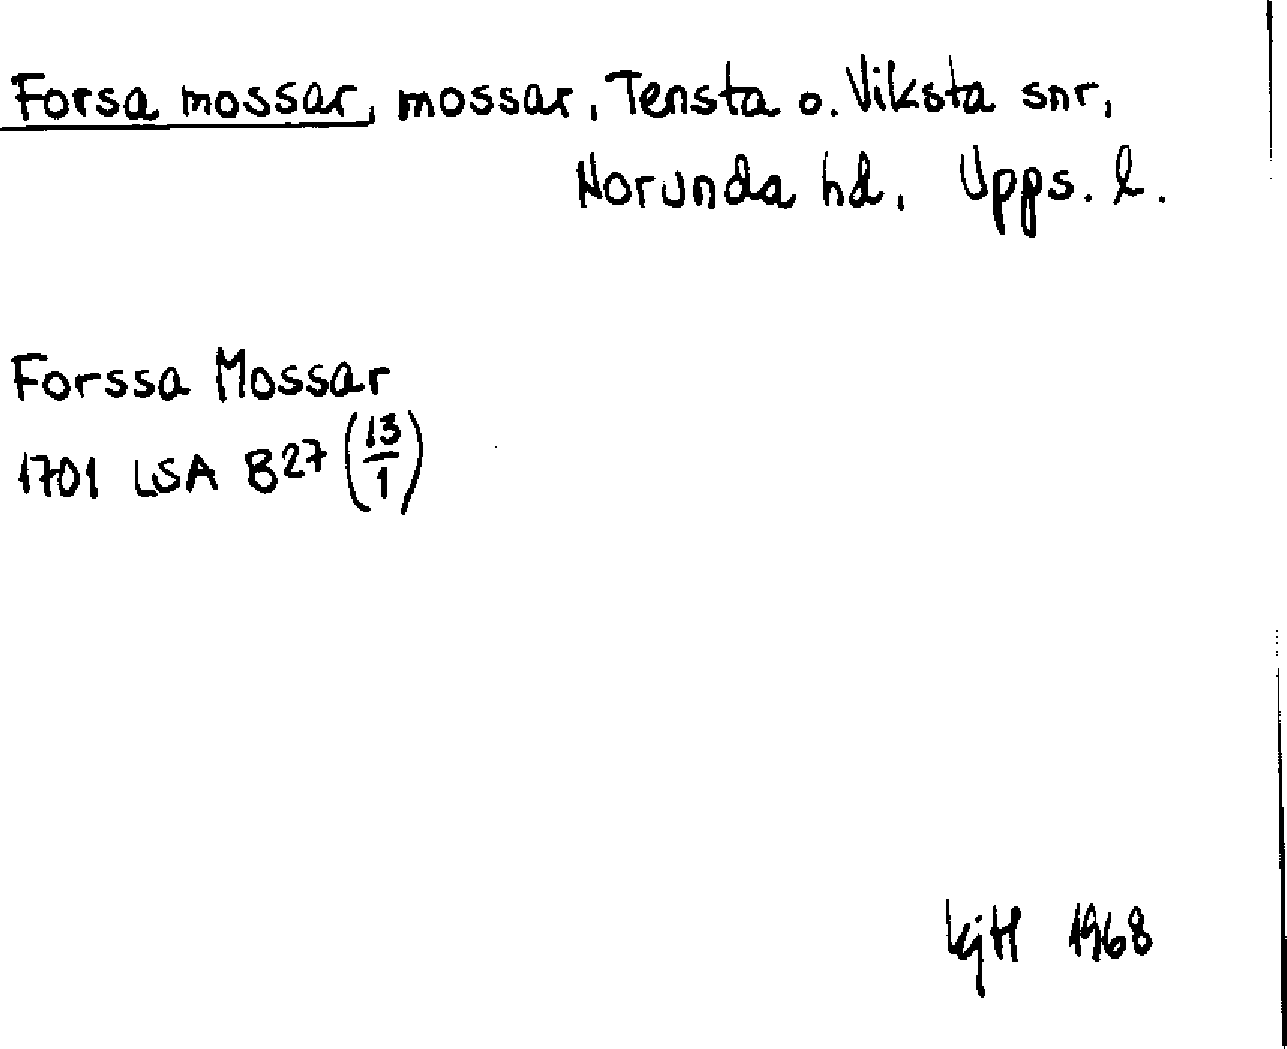 Forsa mossar, mossar, Tensta o. Viksta snr,
Norunda hd, Upps. l.
Forssa Mossar
1701 LSA B27 (13/1)
KjH 1968